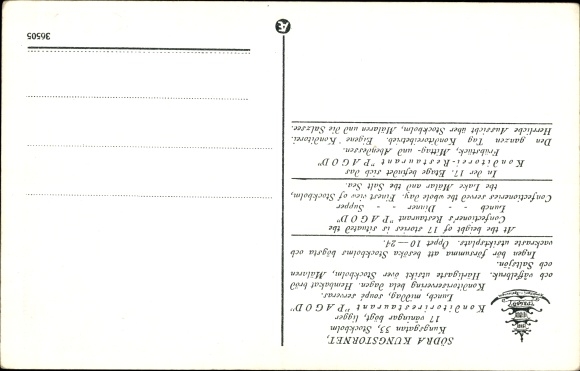 SÖDRA KUNGSTORNET,
Kungsgatan 33, Stockholm
17 våningar högt, ligger
Konditorirestaurant "PAGOD"
Lunch, middag, coupé serveras.
Konditoriservering hela dagen. Hembakat bröd
och våffelbruk. Härligaste utsikt över Stockholm, Mälaren
och Saltsjön.
Ingen bör försumma att besöka Stockholms högsta och
vackraste utsiktsplats. Öppet 10—24.
At the height of 17 stories is situated the
Confectioner's Restaurant "PAGOD"
Lunch - - Dinner - - Supper
Confectioneries served the whole day. Finest view of Stockholm,
the Lake Malar and the Salt Sea.
In der 17. Etage befindet sich das
Konditorei-Restaurant "PAGOD"
Frühstück, Mittag- und Abendessen.
Den ganzen Tag Konditoreibetrieb. Eigene Konditorei.
Herrliche Aussicht über Stockholm, Mälaren und die Salzsee.
Æ
36505